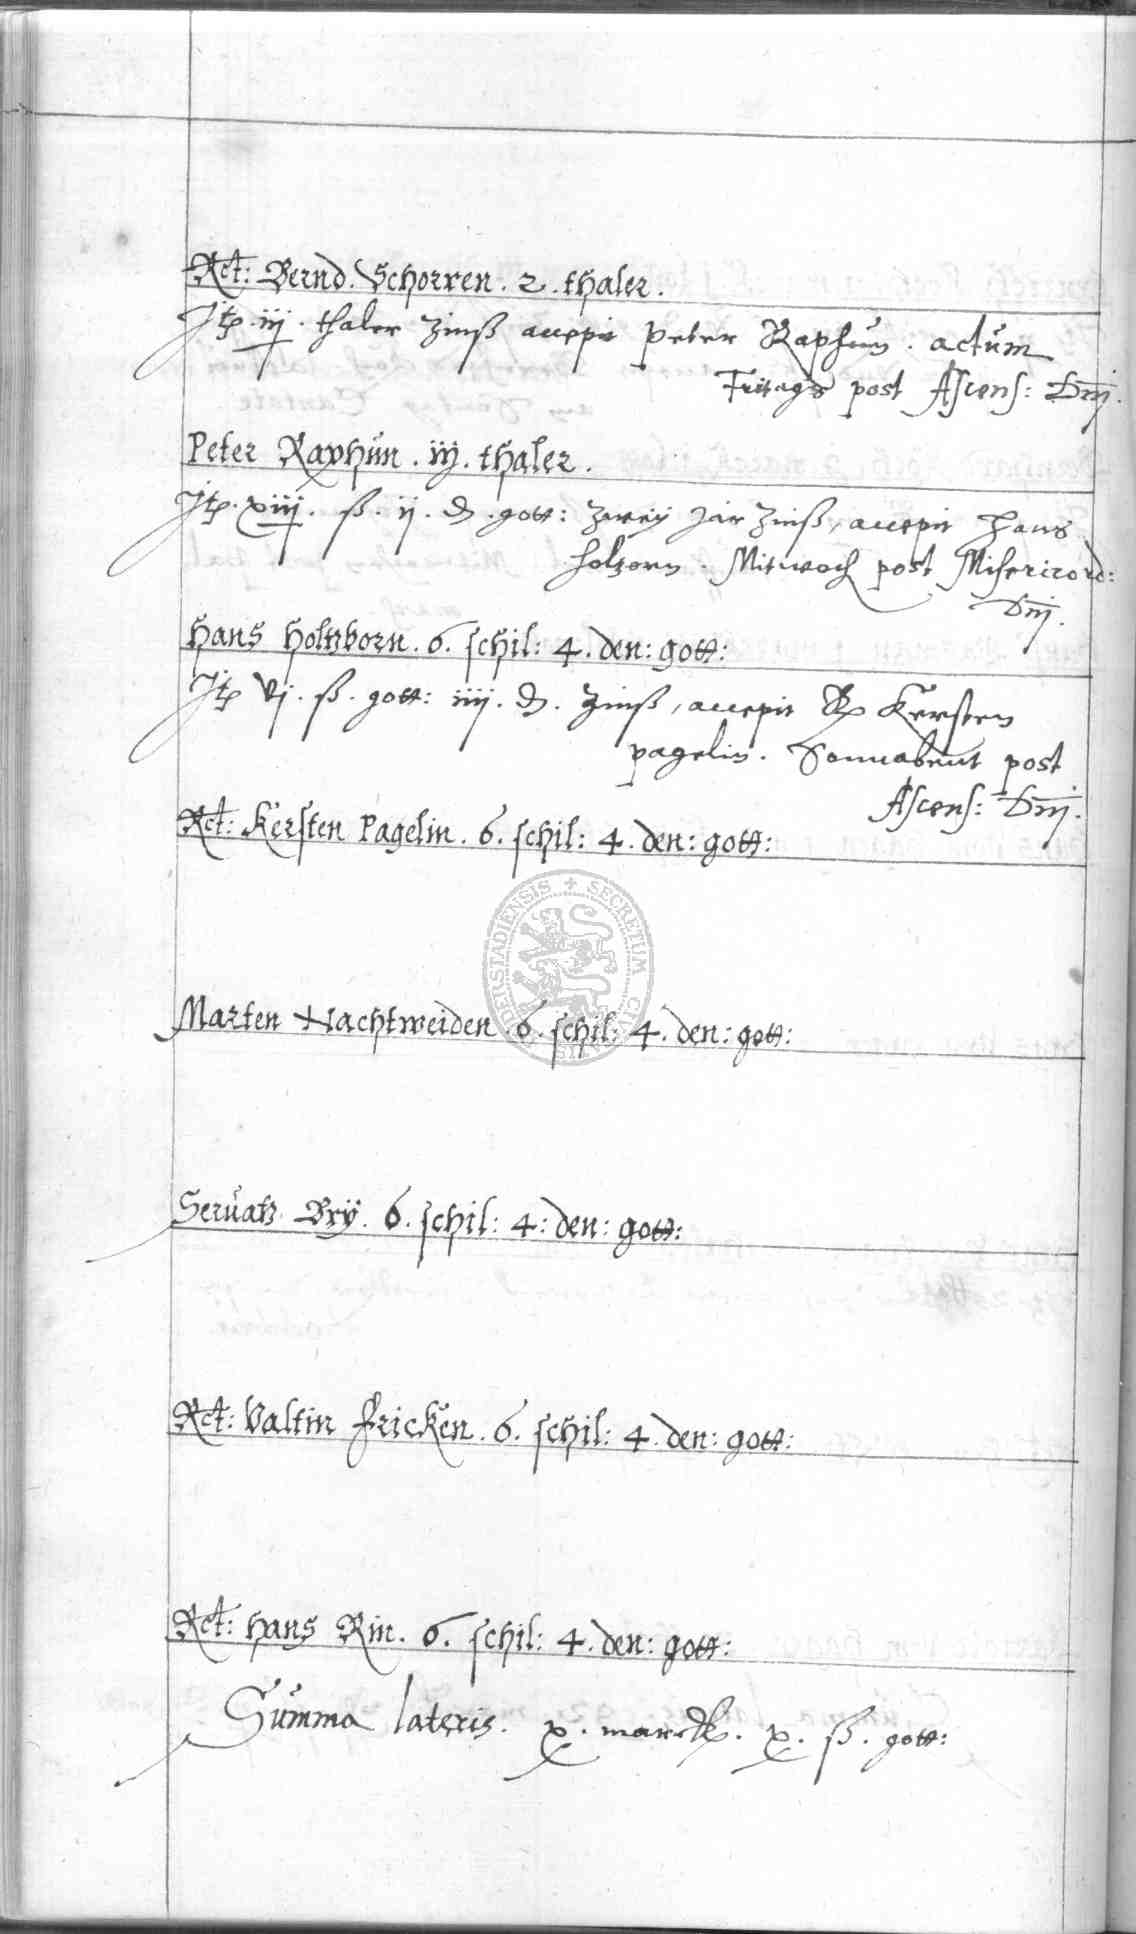 Rct: Bernd Schorren . 2 . thaler .
Jtz . iij . thaler Zinß accepit Peter Raphun . actum
Fritags post Ascens: Dnj .
Peter Raphun . iij . thaler .
Jtz . xiij . ß . ij . d . gott: zweij Jar Zinß , accepit Hans
holtzorn . Mitwoch post Misericord:
Dnj .
Hans Holtzborn . 6 . schil: 4 . den: gott:
Jtz vj . ß . gott: iiij . d . Zinß , accepit Kersten
pagelin . Sonnabent post
Ascens: Dnj .
Rct: Kersten Pagelin . 6 . schil: 4 . den: gott:
SECRETUM
Marten Nachtweiden . 6 . schil: 4 . den: gott:
Seruatz Brÿ . 6 . schil: 4 : den: gott:
Rct: Valtin Fricken . 6 . schil: 4 . den: gott:
Rct: Hans Rin . 6 . schil: 4 . den: gott:
Summa lateris . x . marck . x . ß . gott: